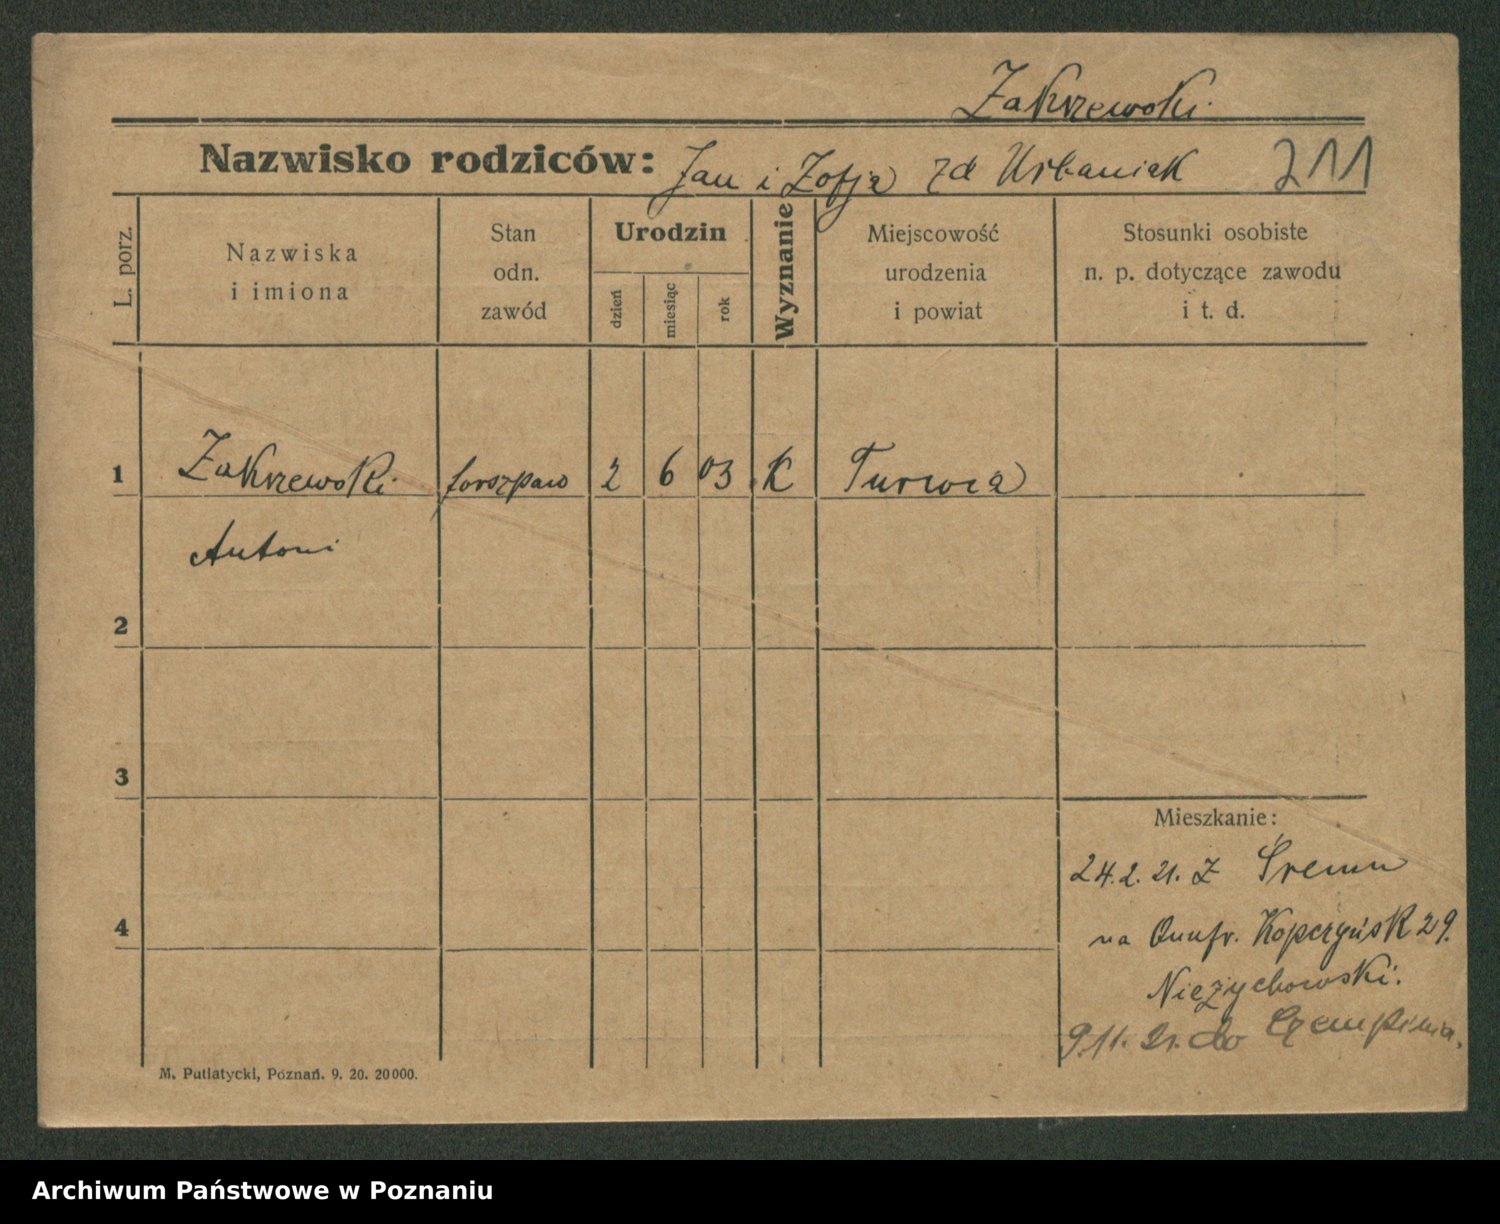 Zakrzewski.
Nazwisko rodziców: Jan i Zofja zd Urbaniak 211
L. porz.
Nazwiska
i imiona
Stan
odn.
zawód
Urodzin
dzień
miesiąc
rok
Wyznanie
Miejscowość
urodzenia
i powiat
Stosunki osobiste
n. p. dotyczące zawodu
i t. d.
1 Zakrzewski forszpan 2 6 03 K Turwia
Antoni
2
3
4
Mieszkanie:
24.2.21. z Śremu
na Onufr. Kopczyńsk 29.
Nieżychowski.
9.11. 21. do Czempinia.
M. Putiatycki, Poznań. 9. 20. 20000.
Archiwum Państwowe w Poznaniu